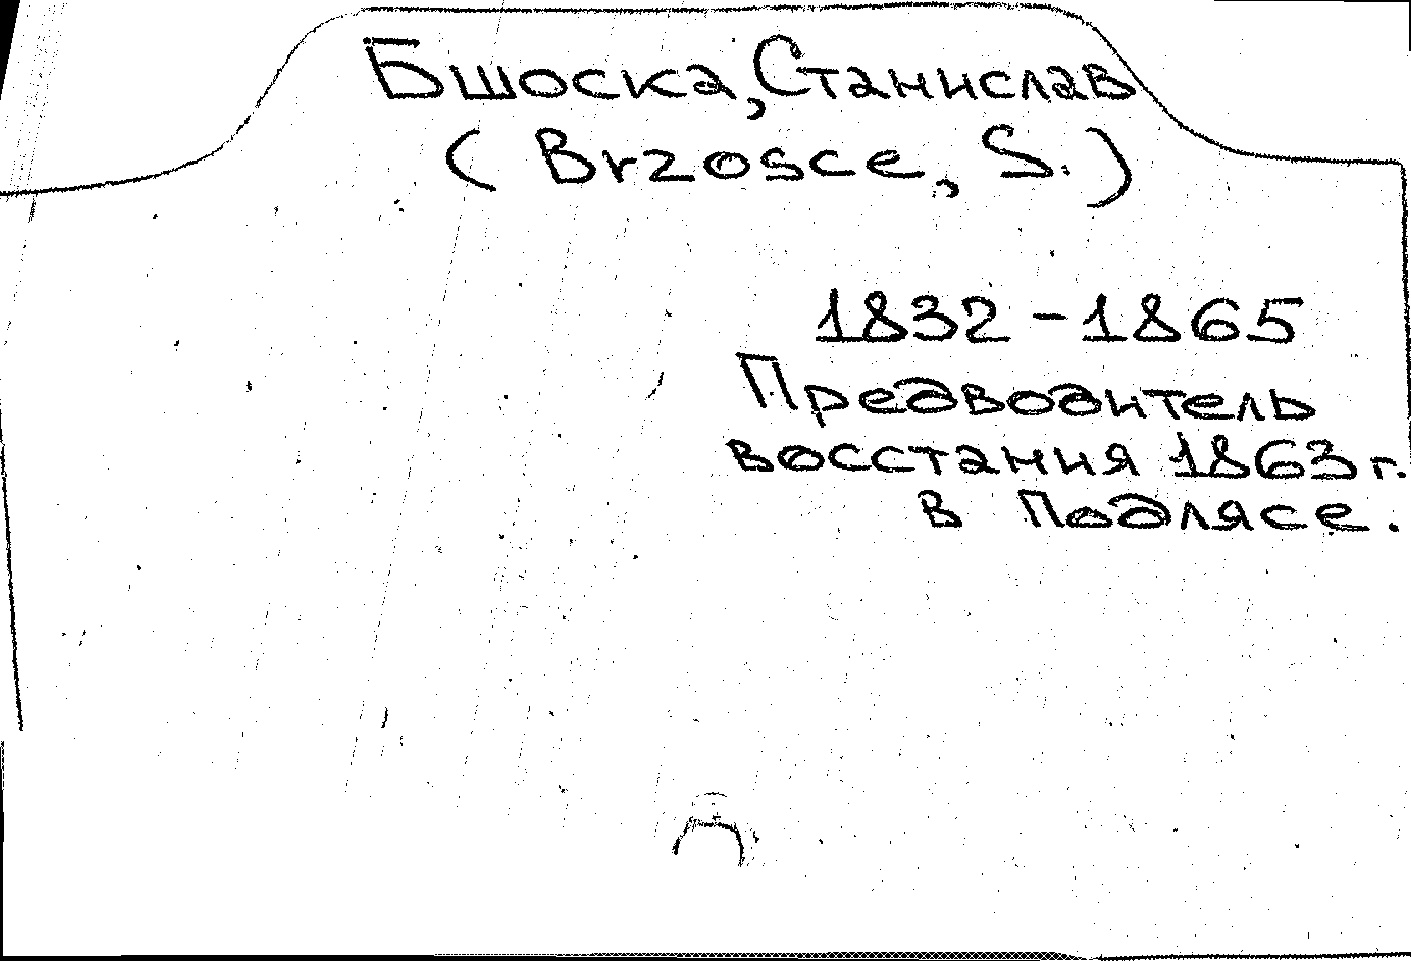 Бшоска, Станислав
(Brzosce, S.)
1832-1865
Предводитель
восстания 1863 г.
в Подлясе.